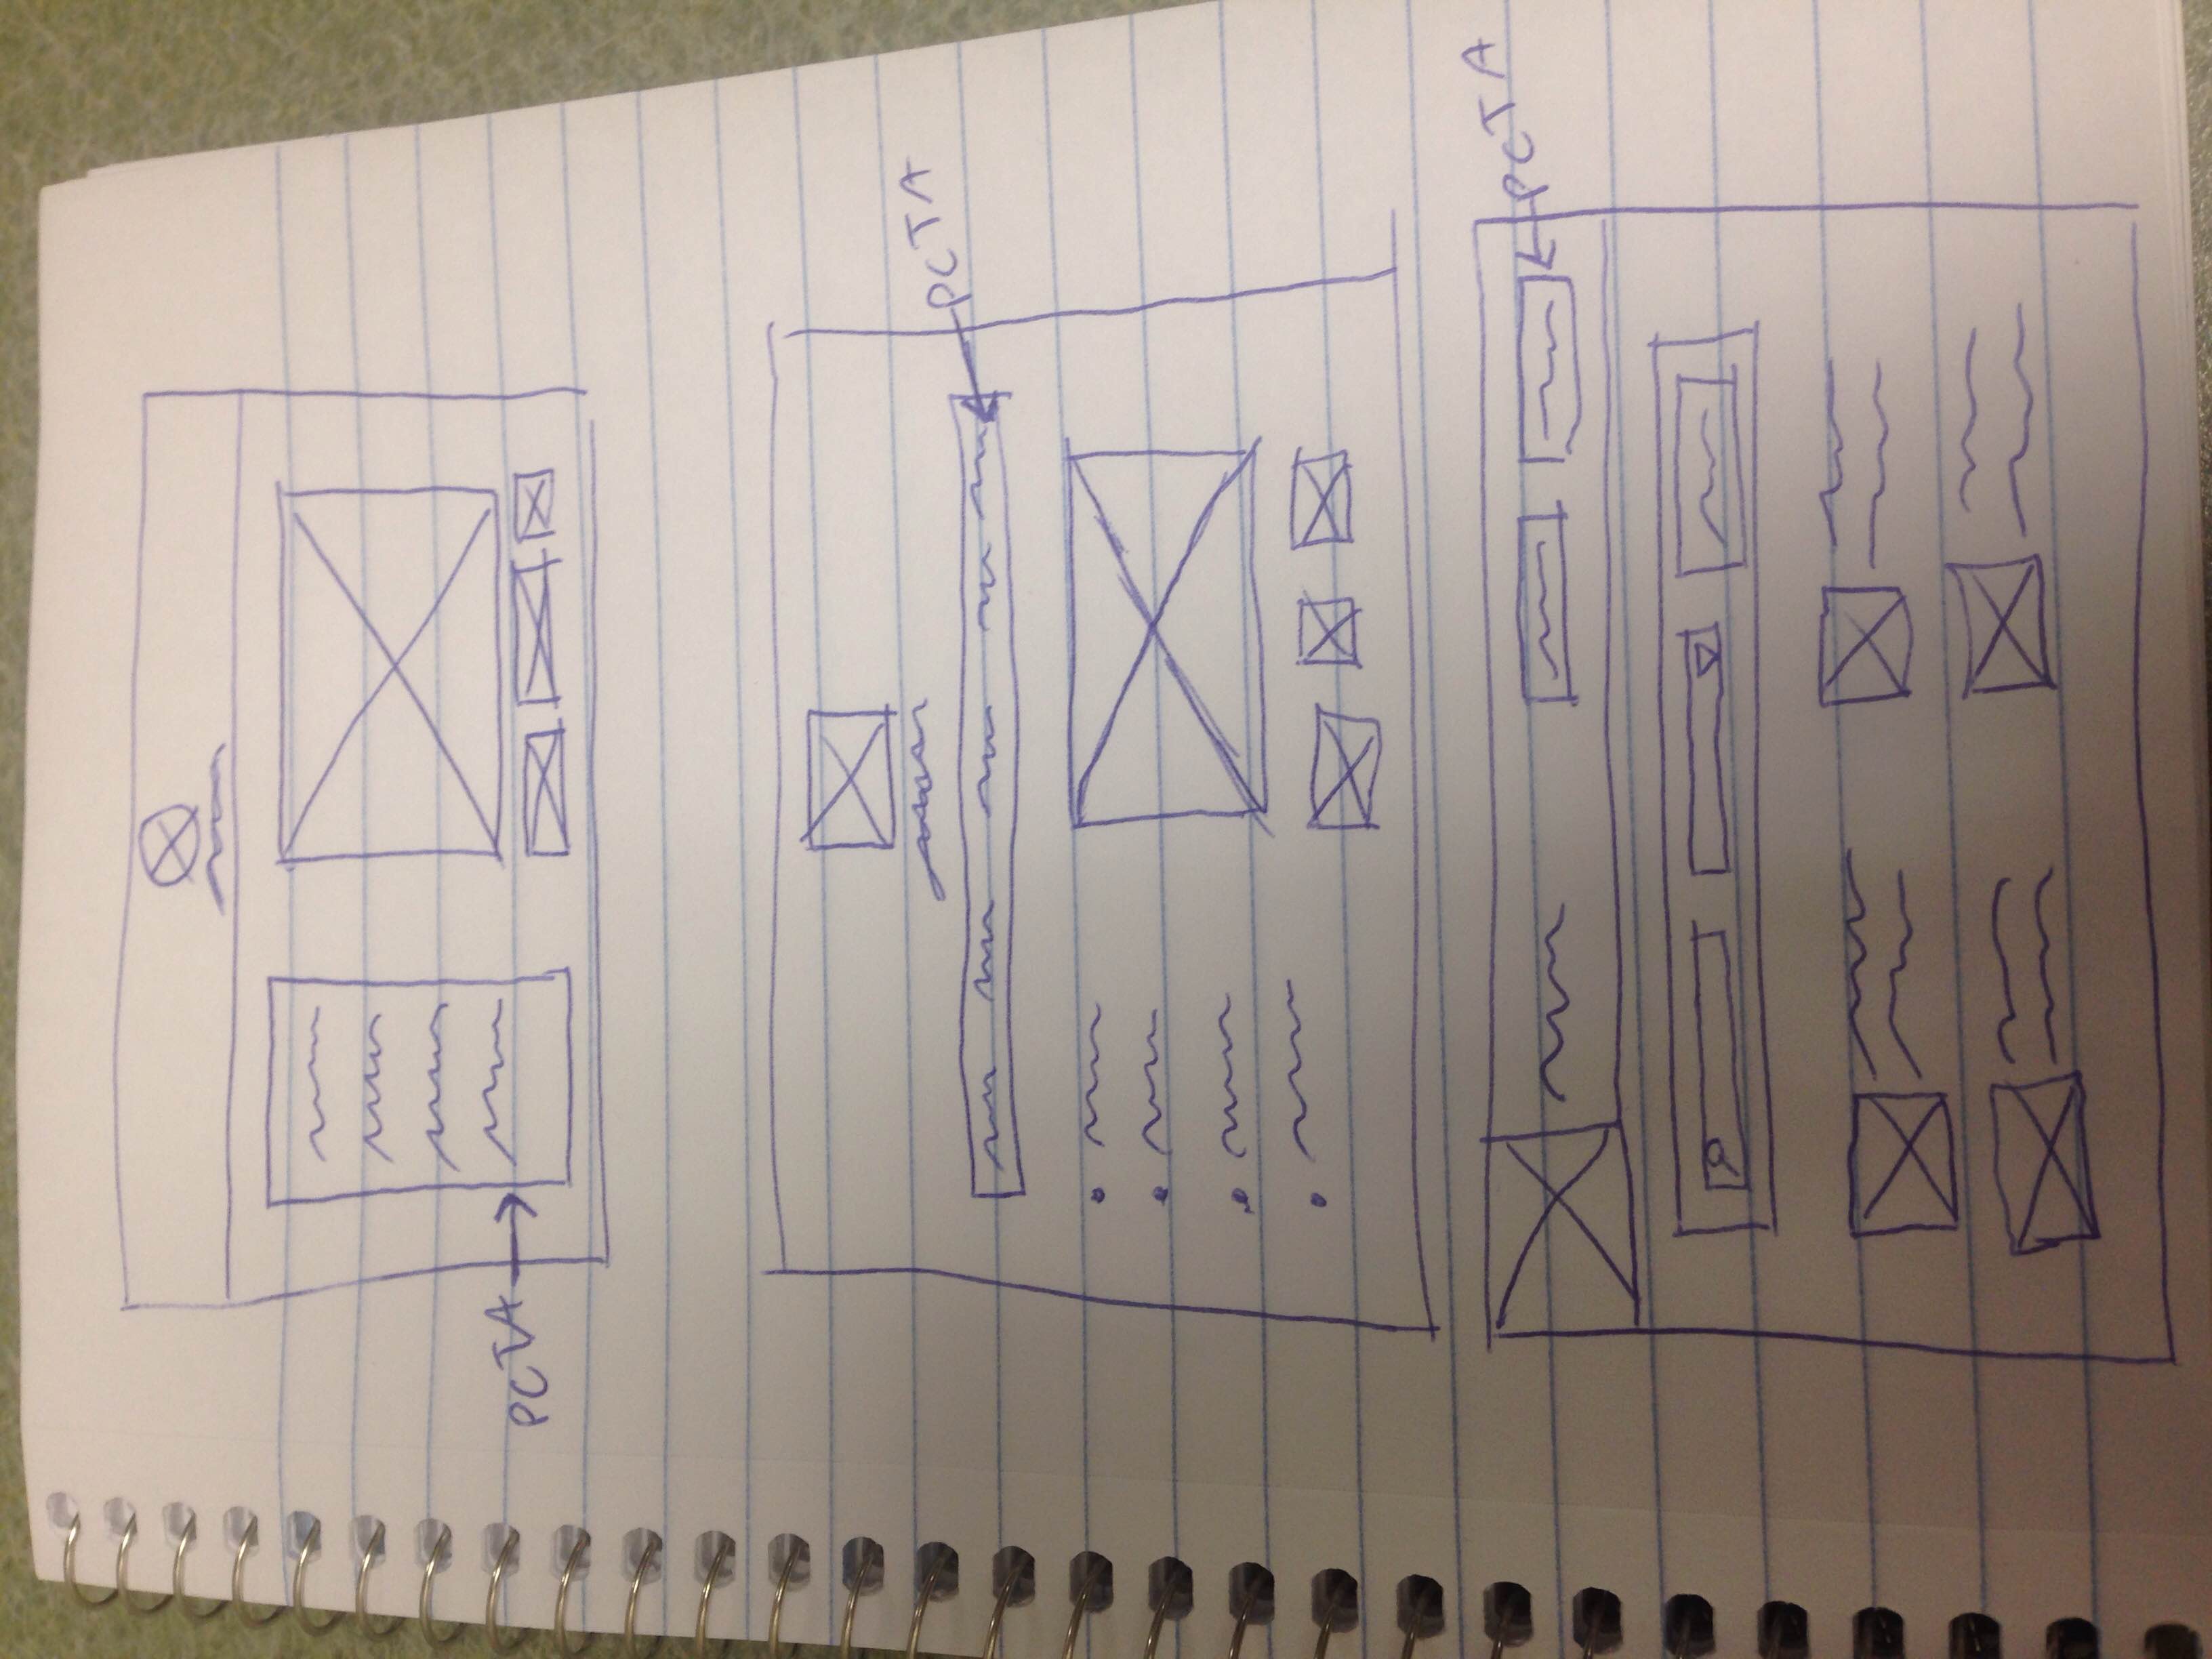 PCTA
PCTA
PCTA